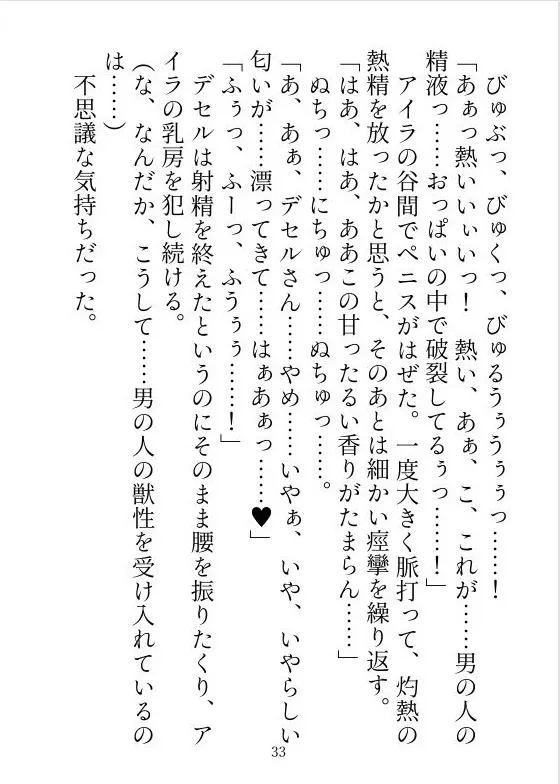 びゅぶっ、びゅくっ、びゅるうぅうぅぅっ……！
「あぁっ熱いいぃいっ！　熱い、あぁ、こ、これが……男の人の
精液っ……おっぱいの中で破裂してるぅっ……！」
アイラの谷間でペニスがはぜた。一度大きく脈打って、灼熱の
熱精を放ったかと思うと、そのあとは細かい痙攣を繰り返す。
「はあ、はあ、ああこの甘ったるい香りがたまらん……」
ぬちっ……にちゅっ……ぬちゅっ……。
「あ、あぁ、デセルさん……やめ……いやぁ、いや、いやらしい
匂いが……漂ってきて……はぁあぁっ……♥」
「ふぅっ、ふーっ、ふうぅぅ……！」
デセルは射精を終えたというのにそのまま腰を振りたくり、ア
イラの乳房を犯し続ける。
（な、なんだか、こうして……男の人の獣性を受け入れているの
は……）
不思議な気持ちだった。
33